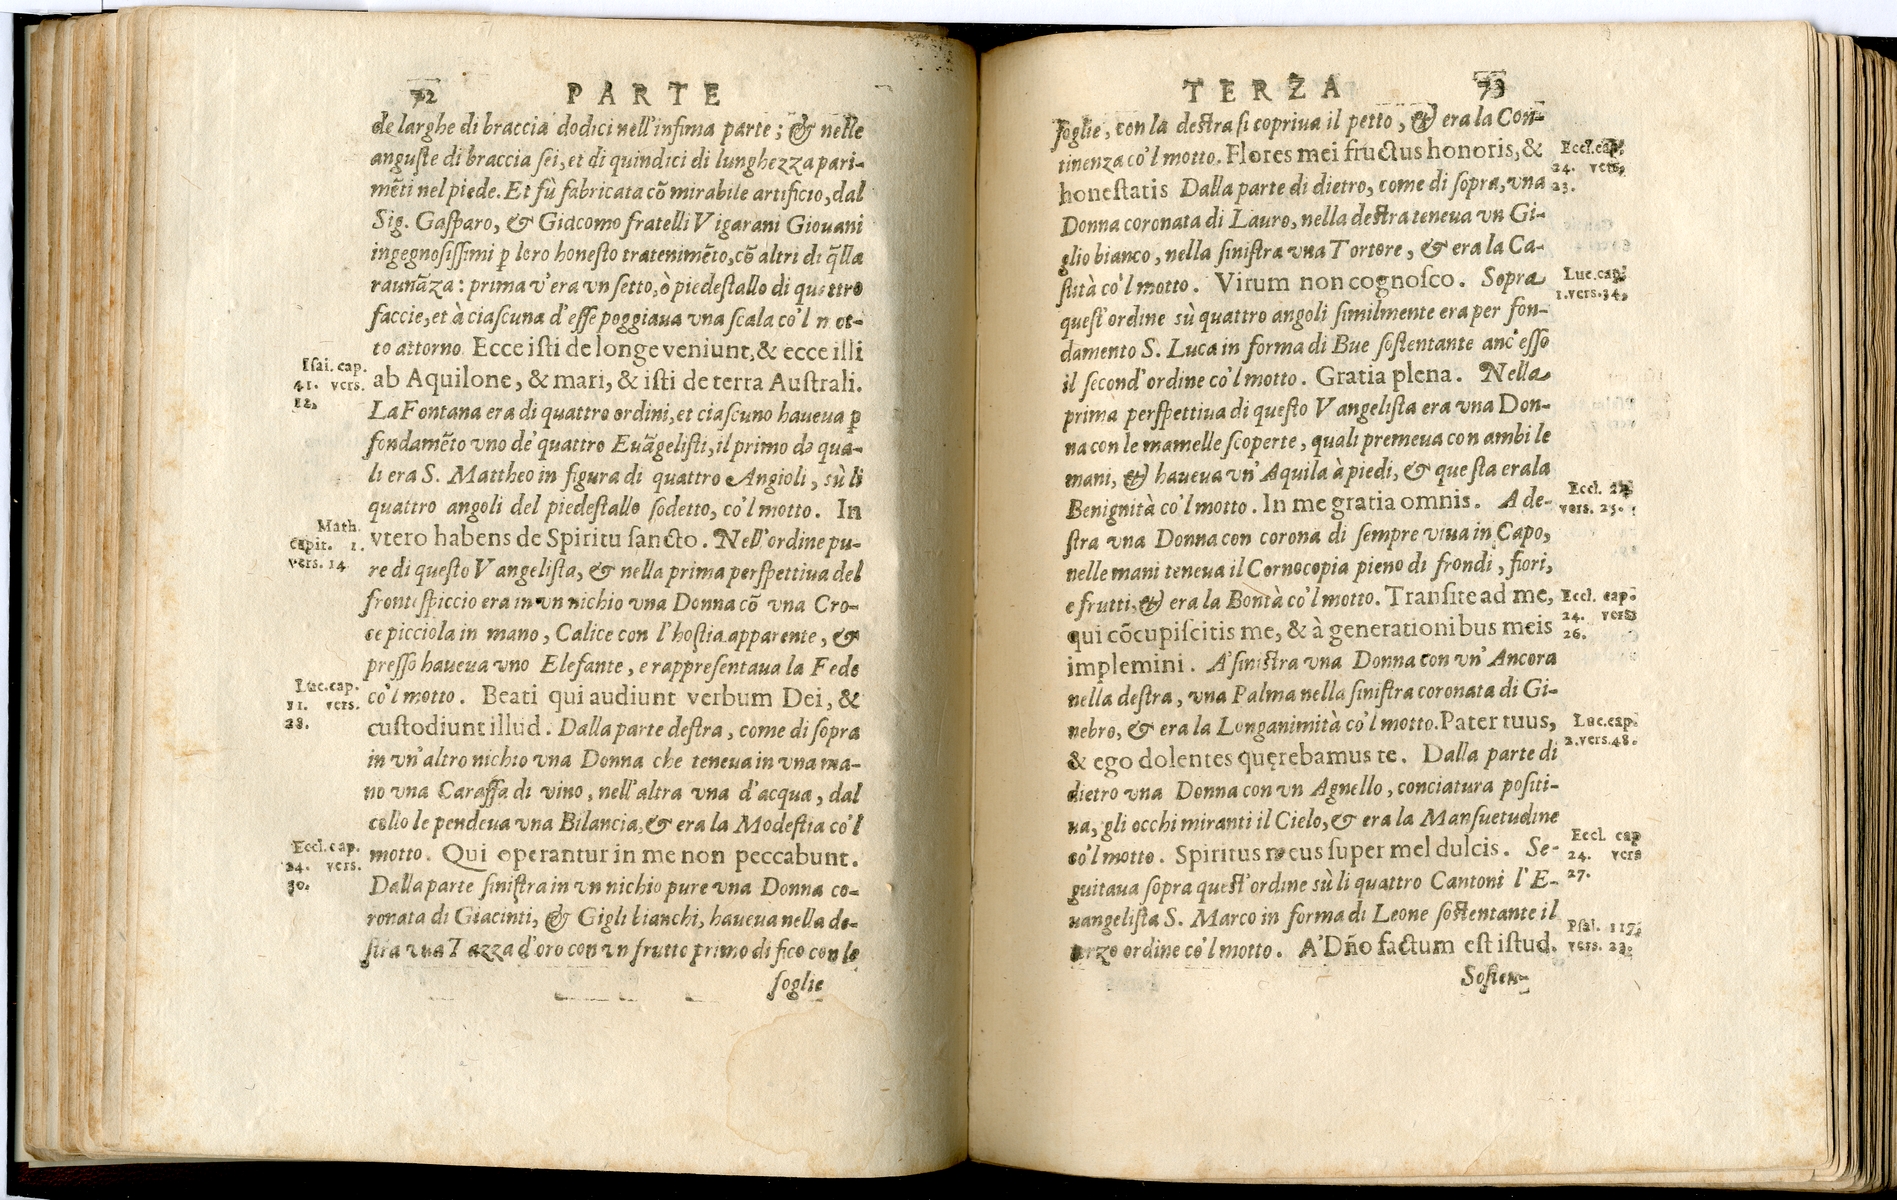 72 PARTE
de larghe di braccia dodici nell'infima parte; & nelle
anguste di braccia sei, et di quindici di lunghezza pari-
mēti nel piede. Et fù fabricata cō mirabile artificio, dal
Sig. Gasparo, & Giacomo fratelli Vigarani Giouani
ingegnosissimi ꝑ loro honesto tratenimēto, cō altri di q̄lla
raunāza: prima v'era vn setto, ò piedestallo di quattro
faccie, et à ciascuna d'esse poggiaua vna scala co'l mot-
to attorno Ecce isti de longe veniunt, & ecce illi
ab Aquilone, & mari, & isti de terra Australi.
Isai. cap.
41. vers.
12.
La Fontana era di quattro ordini, et ciascuno haueua ꝑ
fondamēto vno de' quattro Euāgelisti, il primo de qua-
li era S. Mattheo in figura di quattro Angioli, sù li
quattro angoli del piedestallo sodetto, co'l motto. In
vtero habens de Spiritu sancto. Nell'ordine pu-
Math.
capit. 1.
vers. 14
re di questo Vangelista, & nella prima perspettiua del
frontispiccio era in vn nichio vna Donna cō vna Cro-
ce picciola in mano, Calice con l'hostia apparente, &
presso haueua vno Elefante, e rappresentaua la Fede
co'l motto. Beati qui audiunt verbum Dei, &
custodiunt illud. Dalla parte destra, come di sopra
Luc. cap.
11. vers.
28.
in vn'altro nichio vna Donna che teneua in vna ma-
no vna Caraffa di vino, nell'altra vna d'acqua, dal
collo le pendeua vna Bilancia, & era la Modestia co'l
motto. Qui operantur in me non peccabunt.
Eccl. cap.
24. vers.
30.
Dalla parte sinistra in vn nichio pure vna Donna co-
ronata di Giacinti, & Gigli bianchi, haueua nella de-
stra vna Tazza d'oro con vn frutto primo di fico con le
foglie
TERZA 73
foglie, con la destra si copriua il petto, & era la Con-
tinenza co'l motto. Flores mei fructus honoris, &
honestatis Dalla parte di dietro, come di sopra, vna
Eccl. cap.
24. vers.
23.
Donna coronata di Lauro, nella destra teneua vn Gi-
glio bianco, nella sinistra vna Tortore, & era la Ca-
stità co'l motto. Virum non cognosco. Sopra
Luc. cap.
1. vers. 34.
quest'ordine sù quattro angoli similmente era per fon-
damento S. Luca in forma di Bue sostentante anc'esso
il second'ordine co'l motto. Gratia plena. Nella
prima perspettiua di questo Vangelista era vna Don-
na con le mamelle scoperte, quali premeua con ambi le
mani, & haueua vn'Aquila à piedi, & questa era la
Benignità co'l motto. In me gratia omnis. A de-
Eccl.
vers. 25.
stra vna Donna con corona di sempre viua in Capo,
nelle mani teneua il Cornocopia pieno di frondi, fiori,
e frutti, & era la Bontà co'l motto. Transite ad me,
qui cōcupiscitis me, & à generationibus meis
implemini. A'sinistra vna Donna con vn'Ancora
Eccl. cap.
24. vers
26.
nella destra, vna Palma nella sinistra coronata di Gi-
nebro, & era la Longanimità co'l motto. Pater tuus,
& ego dolentes quęrebamus te. Dalla parte di
Luc. cap.
2. vers. 48.
dietro vna Donna con vn Agnello, conciatura positi-
ua, gli occhi miranti il Cielo, & era la Mansuetudine
co'l motto. Spiritus meus super mel dulcis. Se-
Eccl. cap
24. vers
27.
guitaua sopra quest'ordine sù li quattro Cantoni l'E-
uangelista S. Marco in forma di Leone sostentante il
terzo ordine co'l motto. A'Dño factum est istud.
Psal. 117.
vers. 23.
Sosten-